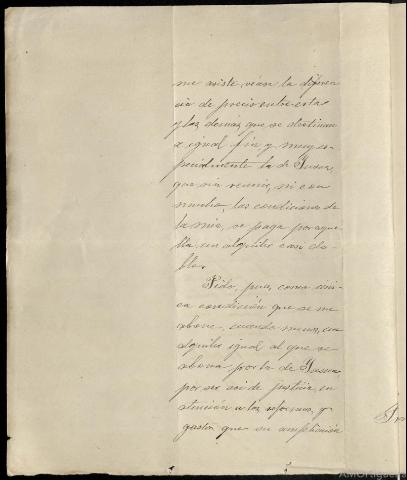 me asiste, véase la diferen
cia de precio entre esta
y las demas que se destinan
a igual fin y muy es
pecialmente la de
que sin reunir, ni con
mucho, las condiciones de
la mia, se paga por aque
lla un alquiler casi do-
ble.
Pido, pues, como úni-
ca condición que se me
abone, cuando menos, un
alquiler igual al que se
abona por la de
por ser así de justicia, en
atención a las reformas, y
gastos que su ampliación